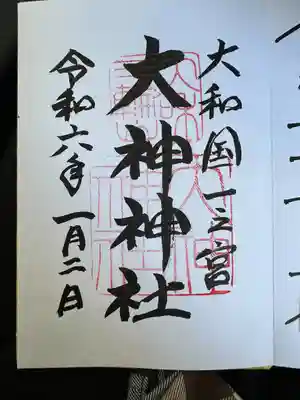 大和国一之宮
大神神社
令和六年一月二日